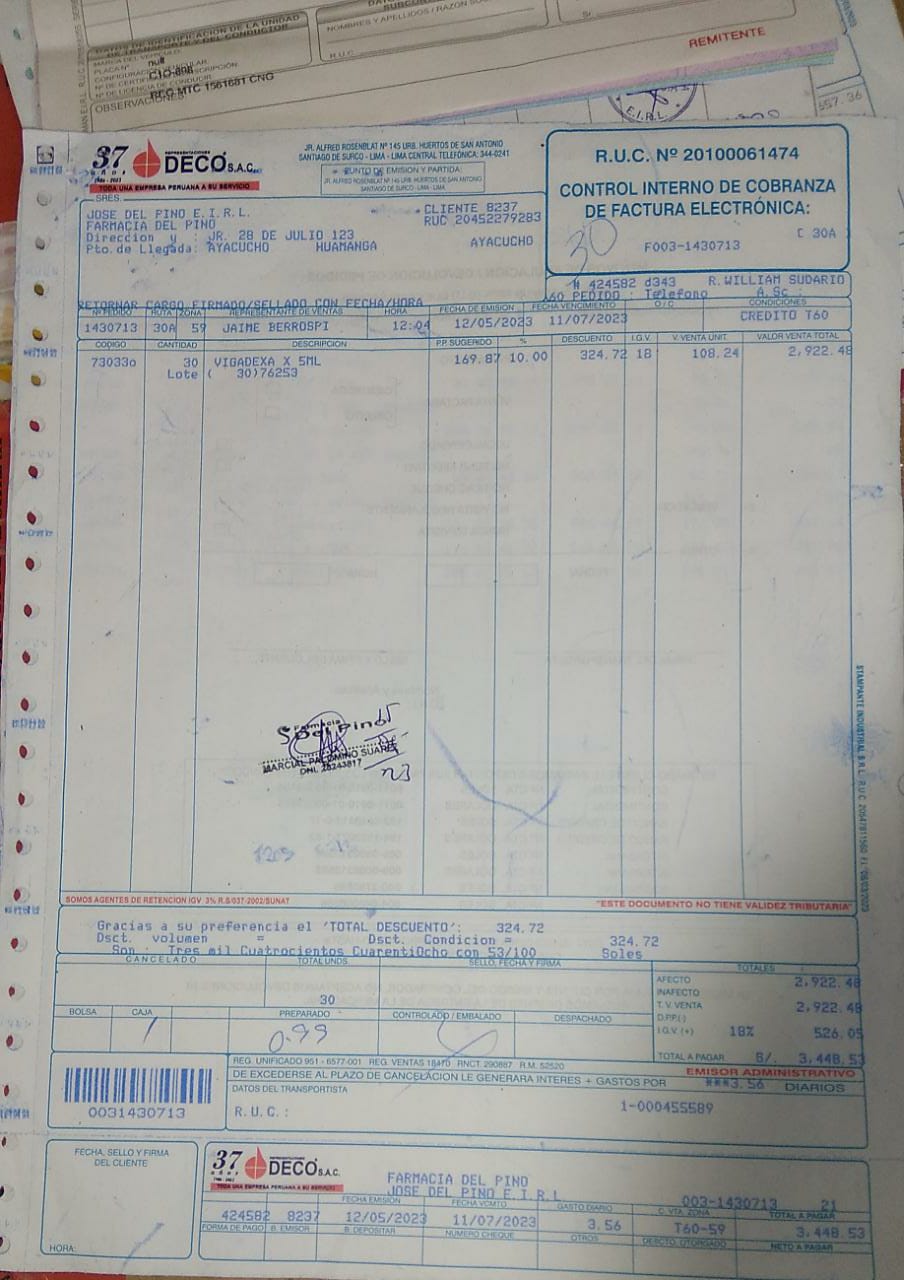 DATOS DE IDENTIFICACION DE LA UNIDAD
DE TRANSPORTE Y DEL CONDUCTOR
MARCA DEL VEHICULO
PLACA Nº
null
CONFIGURACION VEHICULAR
Nº DE LICENCIA DE CONDUCIR
RCG MTC 1561681 CNG
OBSERVACIONES
NOMBRES Y APELLIDOS / RAZON
R.U.C.
REMITENTE
E.I.R.L.
557.36
37 años
REPRESENTACIONES
DECO S.A.C.
TODA UNA EMPRESA PERUANA A SU SERVICIO
JR. ALFRED ROSENBLAT Nº 145 URB. HUERTOS DE SAN ANTONIO
SANTIAGO DE SURCO - LIMA - LIMA CENTRAL TELEFÓNICA: 344-0241
PUNTO DE EMISION Y PARTIDA:
JR. ALFRED ROSENBLAT Nº 145 URB. HUERTOS DE SAN ANTONIO
SANTIAGO DE SURCO - LIMA - LIMA
R.U.C. Nº 20100061474
CONTROL INTERNO DE COBRANZA
DE FACTURA ELECTRÓNICA:
C 30A
30
F003-1430713
SRES.
JOSE DEL PINO E.I.R.L.
FARMACIA DEL PINO
Direccion y : JR. 28 DE JULIO 123
Pto.de Llegada: AYACUCHO HUAMANGA AYACUCHO
CLIENTE 8237
RUC 20452279283
# 424582 d343 R.WILLIAM SUDARIO
60 PEDIDO : Telefono A.Sc :
RETORNAR CARGO FIRMADO/SELLADO CON FECHA/HORA
Nº PEDIDO RUTA ZONA REPRESENTANTE DE VENTAS HORA FECHA DE EMISION FECHA VENCIMIENTO O/C CONDICIONES
1430713 30A 59 JAIME BERROSPI 12:04 12/05/2023 11/07/2023 CREDITO T60
CODIGO CANTIDAD DESCRIPCION P.P. SUGERIDO % DESCUENTO I.G.V. V. VENTA UNIT. VALOR VENTA TOTAL
73033o 30 VIGADEXA X 5ML 169.87 10.00 324.72 18 108.24 2,922.48
Lote ( 30)76253
Farmacia
Del Pino
MARCIAL PALOMINO SUAREZ
DNI. 28243817
STAMPANTE INDUSTRIAL S.R.L. R.U.C. 20547811560
SOMOS AGENTES DE RETENCION IGV 3% R.S/037-2002/SUNAT
"ESTE DOCUMENTO NO TIENE VALIDEZ TRIBUTARIA"
Gracias a su preferencia el 'TOTAL DESCUENTO': 324.72
Dsct. volumen = Dsct. Condicion = 324.72
Son : Tres mil Cuatrocientos CuarentiOcho con 53/100 Soles
CANCELADO TOTAL UNDS. SELLO, FECHA Y FIRMA TOTALES
30
AFECTO 2,922.48
INAFECTO
T. V. VENTA 2,922.48
D.PP.(-)
I.G.V. (+) 18% 526.05
TOTAL A PAGAR S/. 3,448.53
BOLSA CAJA PREPARADO CONTROLADO / EMBALADO DESPACHADO
1 0.99
REG. UNIFICADO 951 - 6577-001 REG. VENTAS 18470 RNCT 290887 R.M. 52520
EMISOR ADMINISTRATIVO
DE EXCEDERSE AL PLAZO DE CANCELACION LE GENERARA INTERES + GASTOS POR ***3.56 DIARIOS
DATOS DEL TRANSPORTISTA
1-000455589
R.U.C. :
0031430713
FECHA, SELLO Y FIRMA
DEL CLIENTE
HORA:
37 años
DECO S.A.C.
TODA UNA EMPRESA PERUANA A SU SERVICIO
FARMACIA DEL PINO
JOSE DEL PINO E.I.R.L
003-1430713 21
FECHA EMISION FECHA VCMTO GASTO DIARIO C. VTA. ZONA TOTAL A PAGAR
424582 8237 12/05/2023 11/07/2023 3.56 T60-59 3,448.53
FORMA DE PAGO B. EMISOR B. DEPOSITAR NUMERO CHEQUE OTROS DESCTO. OTORGADO NETO A PAGAR